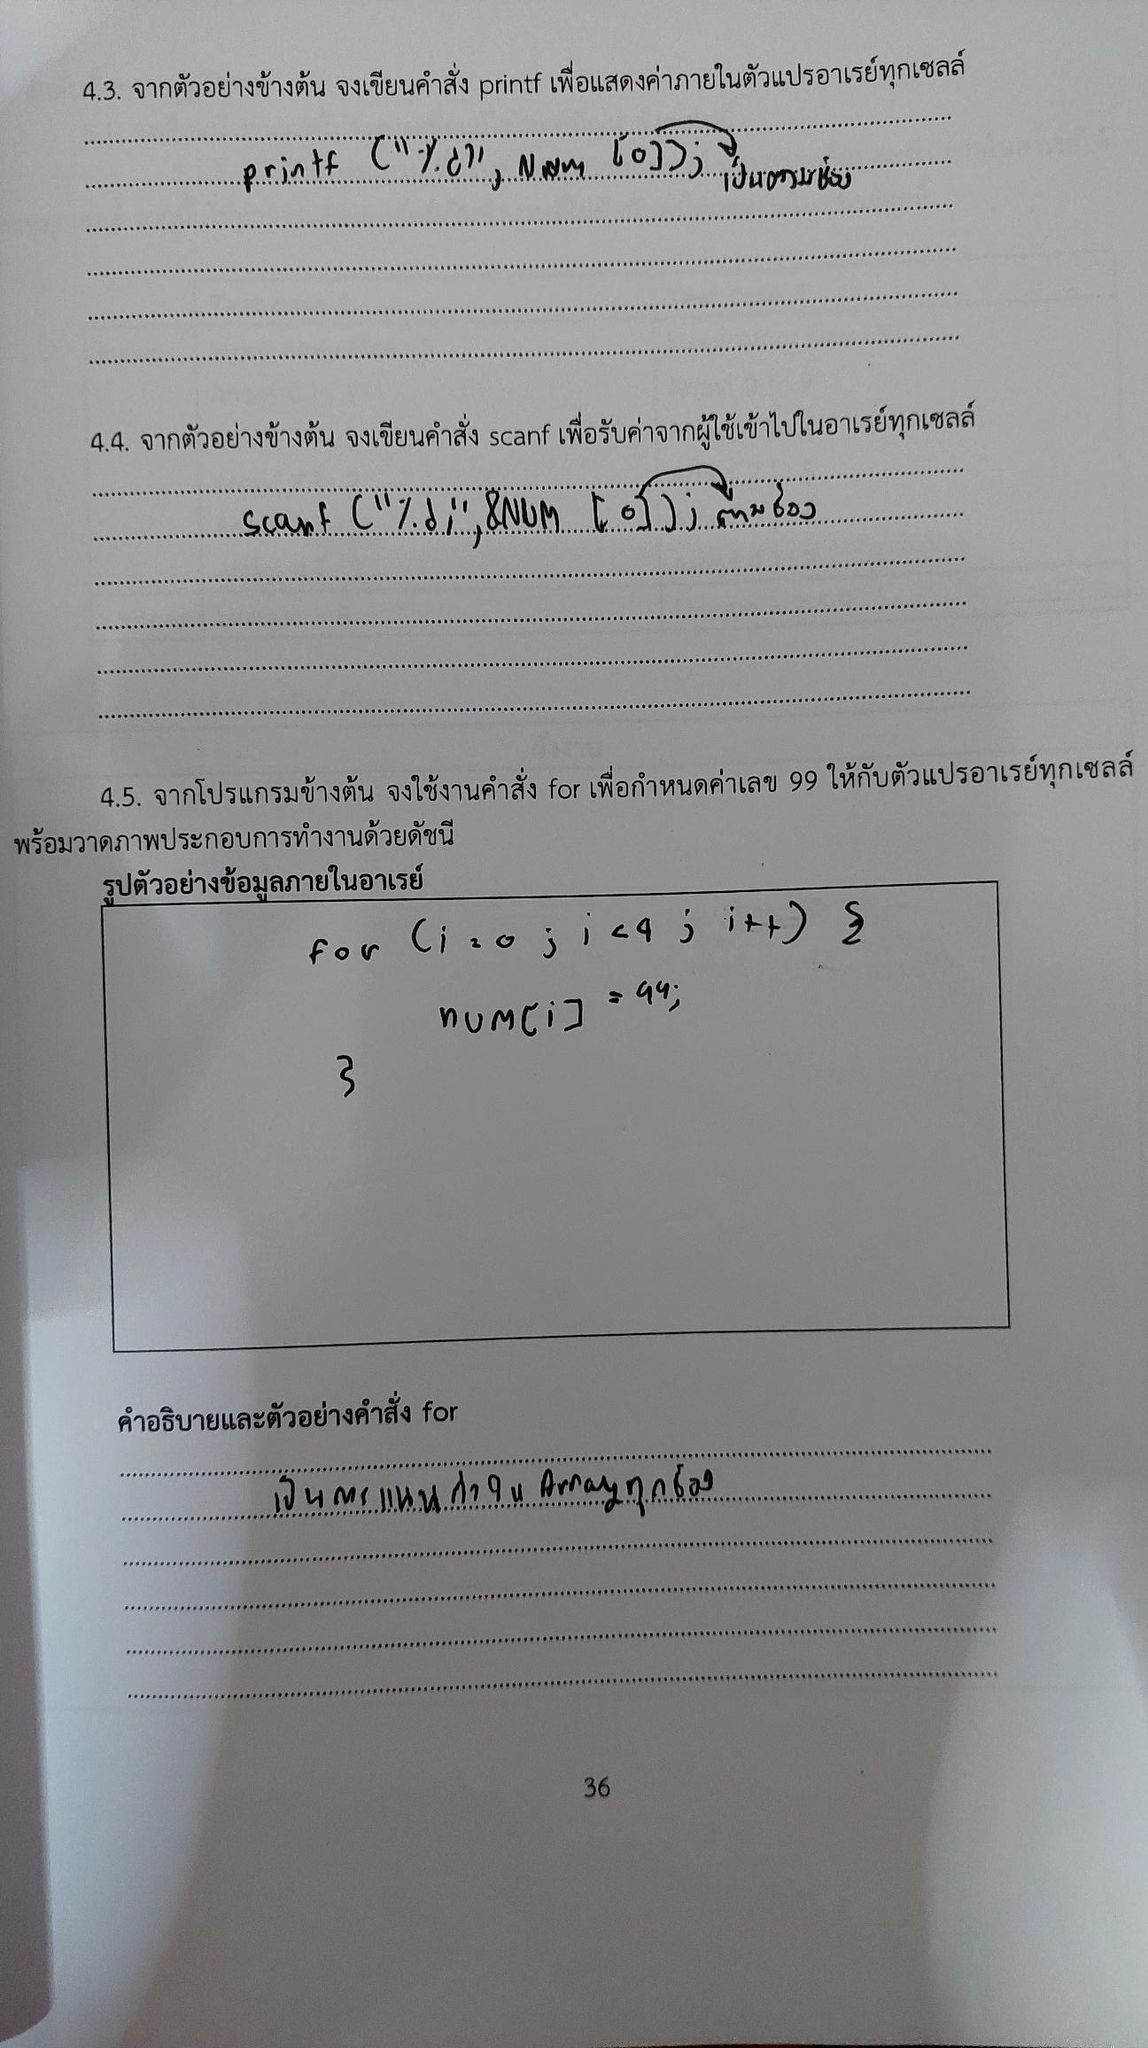 4.3. จากตัวอย่างข้างต้น จงเขียนคำสั่ง printf เพื่อแสดงค่าภายในตัวแปรอาเรย์ทุกเซลล์
printf ("%d", Num [0]);
4.4. จากตัวอย่างข้างต้น จงเขียนคำสั่ง scanf เพื่อรับค่าจากผู้ใช้เข้าไปในอาเรย์ทุกเซลล์
scanf ("%d", &NUM [0]); ตามช่อง
4.5. จากโปรแกรมข้างต้น จงใช้งานคำสั่ง for เพื่อกำหนดค่าเลข 99 ให้กับตัวแปรอาเรย์ทุกเซลล์
พร้อมวาดภาพประกอบการทำงานด้วยดัชนี
รูปตัวอย่างข้อมูลภายในอาเรย์
for (i=0 ; i<9 ; i++) {
num[i] = 99;
}
คำอธิบายและตัวอย่างคำสั่ง for
เป็นการแทนค่าใน Array ทุกช่อง
36